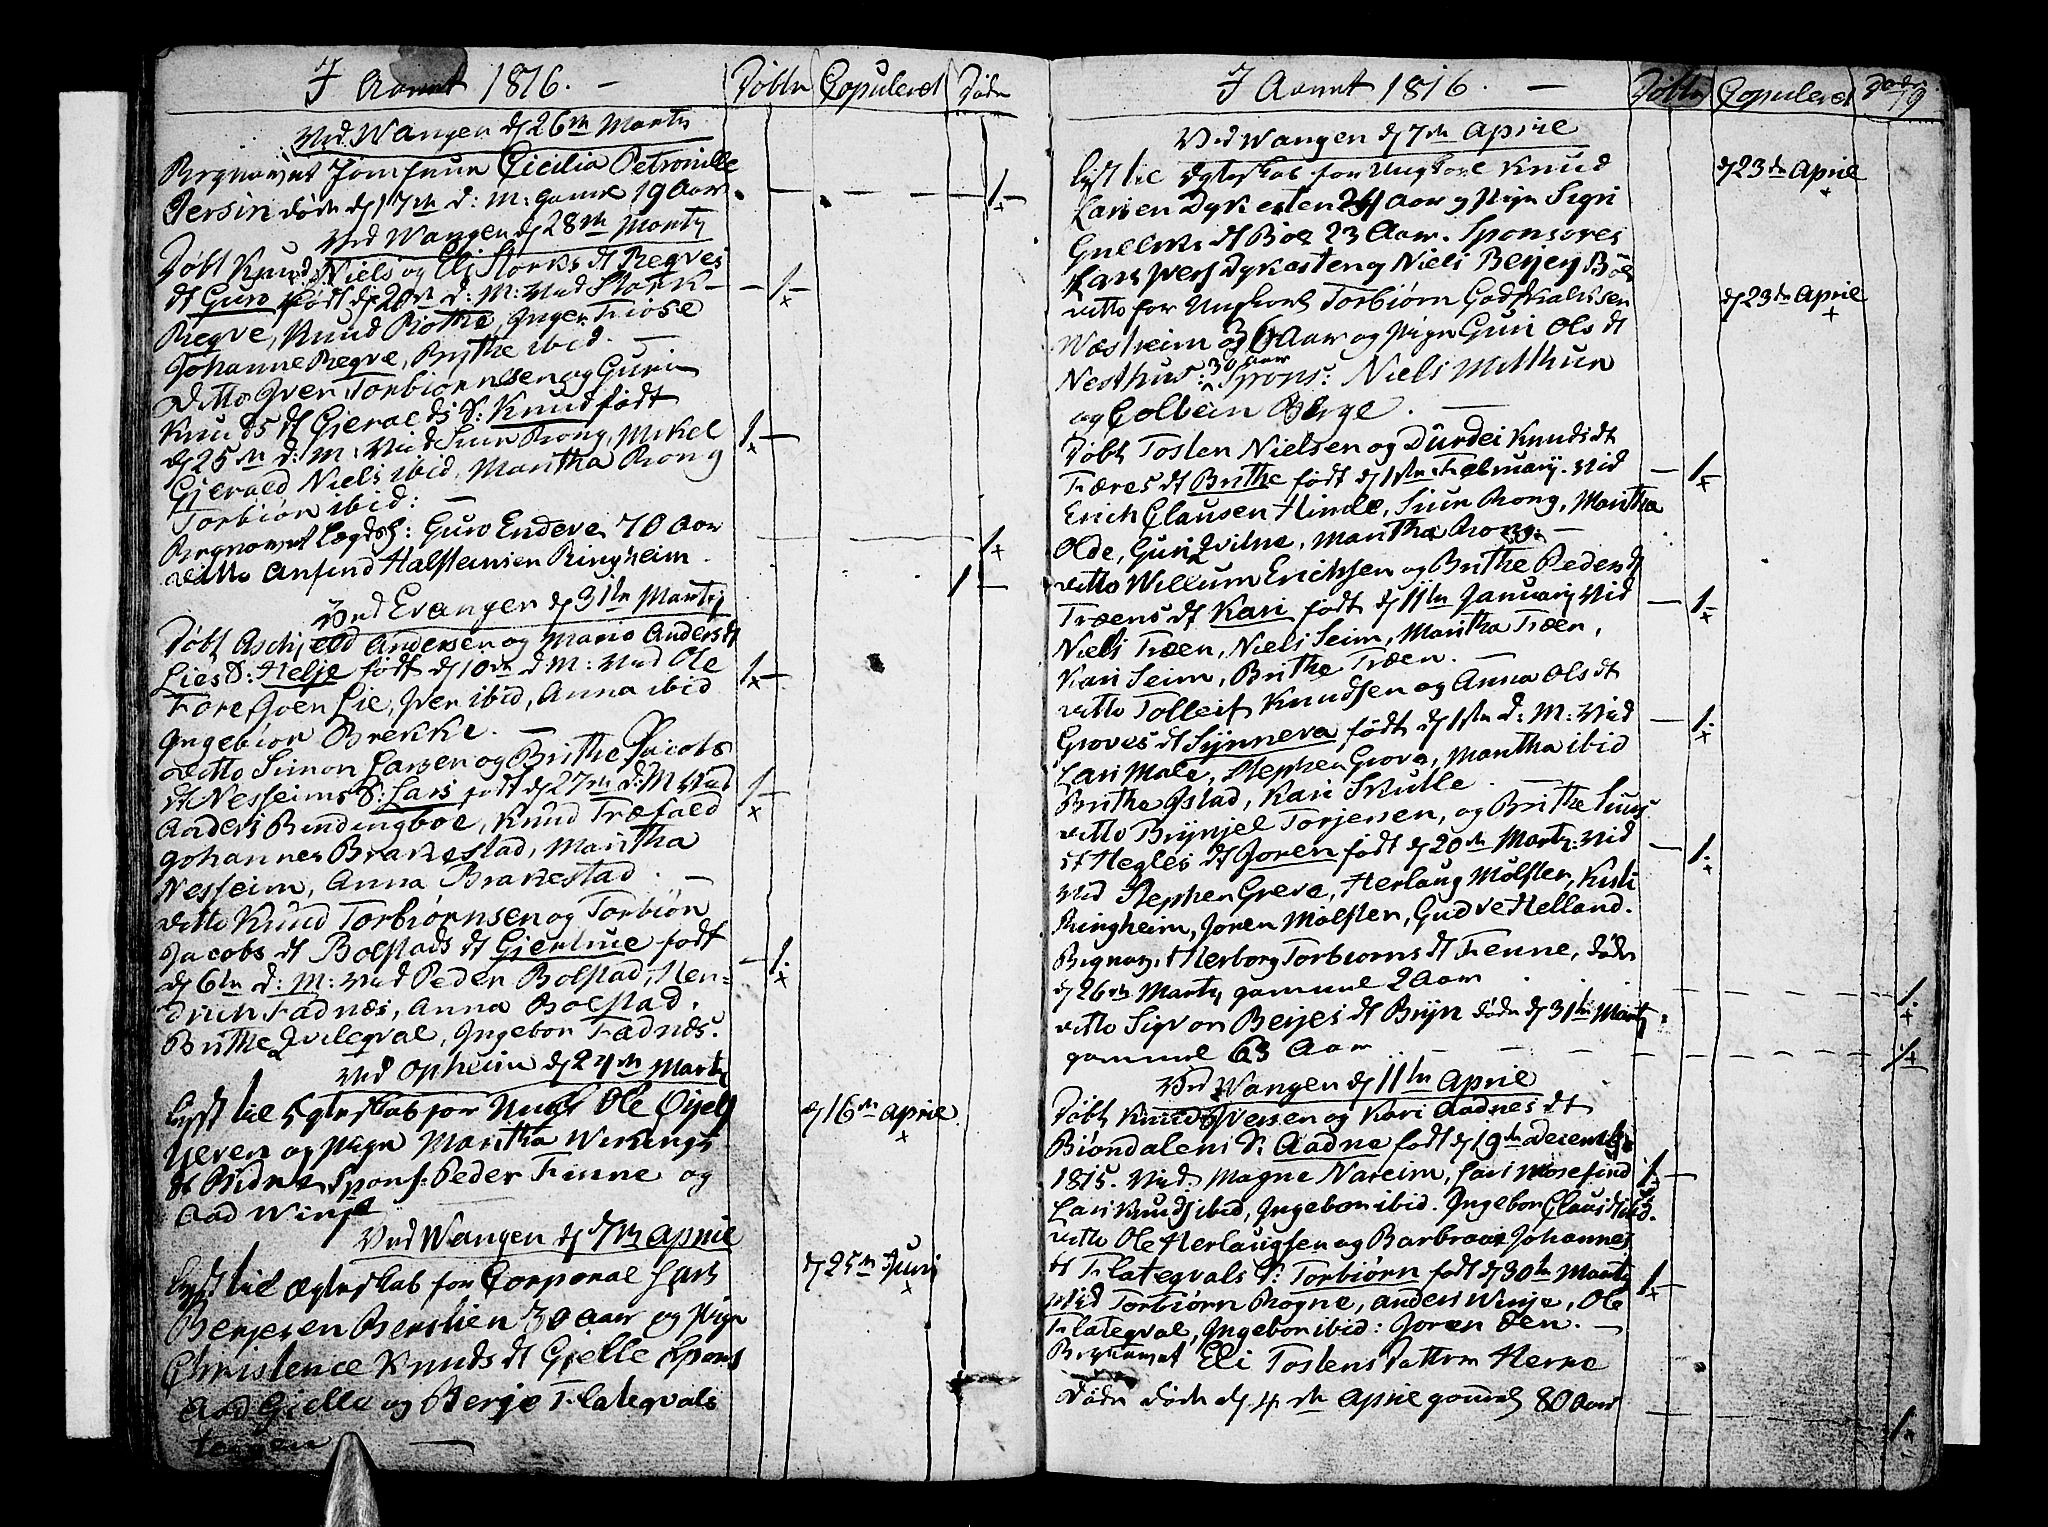 I Aaret 1816. — Døbte Copuleret Døde
Ved Wangen d 26de Marty
Begravet Jomfrue Cicilia Petronille
Persin døde d 17de d: M: gaml 19 Aar. 1
Ved Wangen d 28de Marty
Døbt Knud Niels og Eli Storks dt Reqves
dt Guro født d 20de d: M: Ved Stork 1
Reqve, Knud Rothe, Inger Fiose
Johanne Reqve, Brithe ibid. —
Ditto Iver Torbiørnsen og Guri
Knuds dt Gieralds S: Knud født
d 25de d: M: Ved Siur Rong, Mikel 1
Gjerald Niels ibid, Martha Rong
Torbiør ibid: —
Begravet Lægdsl: Guro Endeve 70 Aar 1
ditto Anfind Halsteinsen Ringheim. 1
Ved Evangen d 31te Marty
Døbt Aschjeld Andersen og Mario Anders dt
Lies S: Helje født d 10de d M: Ved Ole 1
Fore Goen Lie, Iver ibid, Anna ibid
Ingebior Brekke. —
ditto Simon Larsen og Brithe Jacobs
dt Nesheims S: Lars født d 27de d: M Ved 1
Anders Bindingboe, Knud Træfald
Johannes Brakestad, Martha
Nesheim, Anna Brakestad. —
ditto Knud Torbiørnsen og Torbiør
Jacobs dt Bolstads dt Giertrue født
d 6te d: M: Ved Peder Bolstad, Hen= 1
drich Fadnæs, Anna Bolstad,
Brithe Qvileqval, Ingebor Fadnæs.
Ved Opheim d 24de Marty
Lyst til Egteskab for Unk: Ole d 16de April
og Pign Martha Wikings
dt Ridne Spons: Peder Finne og
Aad Winje
Ved Wangen d 7de April
Lyst til Ægteskab for Corporal Lars d 25de Juni
Berjesen Berslien 30 Aar og Pign
Christence Knuds dt Gielle Spons
Aad Gielle og Berje Flateqvals
teigen —
I Aaret 1816. — Døbte Copuleret Døde 79
Ved Wangen d 7de April
Lyst til Egteskab for Ungkarl Knud d 23de April
Larsen Dykesten 24 Aar og Pign Sigri
dt Böe 23 Aar. Sponsores
Lars Dykesten og Niels Berjej Böe
ditto for Ungkarl Torbiørn Godskalksen d 23de April
Wæsheim 36 Aar og Pign Guri Ols dt
Nesthus: 30 Aar Spons: Niels Mitthun
og Colbein Berge. —
Døbt Tosten Nielsen og Dürdei Knuds dt
Færes dt Brithe født d 1ste Februarij. Ved 1
Erich Clausen Hinde, Siur Rong, Martha
Olde, Guri Qvitne, Martha Rong. —
ditto Willum Erichsen og Brithe Peders dt
Træens dt Kari født d 11te January Ved 1
Niels Træen, Niels Seim, Martha Træen,
Kari Seim, Brithe Træen. —
ditto Tolleif Knudsen og Anna Ols dt
Groves dt Synneva født d 1ste d: M: Ved 1
Lars Male, Stephen Grove, Martha ibid
Brithe Istad, Kari Skulle. —
ditto Brynjel Torjersen, og Brithe Siurs
dt Hegles dt Joren født d 20de Marty: Ved 1
Ved Stephen Greve, Herlaug Mølster, Kisti
Ringheim, Joren Mølster, Gudve Helland.
Begrav:t Herborg Torbiorns dt Finne, døde
d 26de Marty gammel 2 Aar 1
ditto Sigvor Berjes dt Bryn døde d 31te Marty
gammel 63 Aar 1
Ved Wangen d 11te April
Døbt Knud Iversen og Kari Aadnes dt
Biøndalens S: Aadne født d 19de Decembr
1815. Ved: Magne Nareim, Lars Mosefind 1
Lars Knuds ibid, Ingebor ibid. Ingebor Claus dt ibid.
ditto Ole Herlaugsen og Barbraae Johannes
dt Flateqvals S: Torbiørn født d 30te Marty 1
Ved Torbiørn Rogne, Anders Winje, Ole
Flateqval, Ingebor ibid: Joren Øen. —
Begravet Eli Tostens datter Herre
Døde døde d 4de April gaml 80 Aar 1